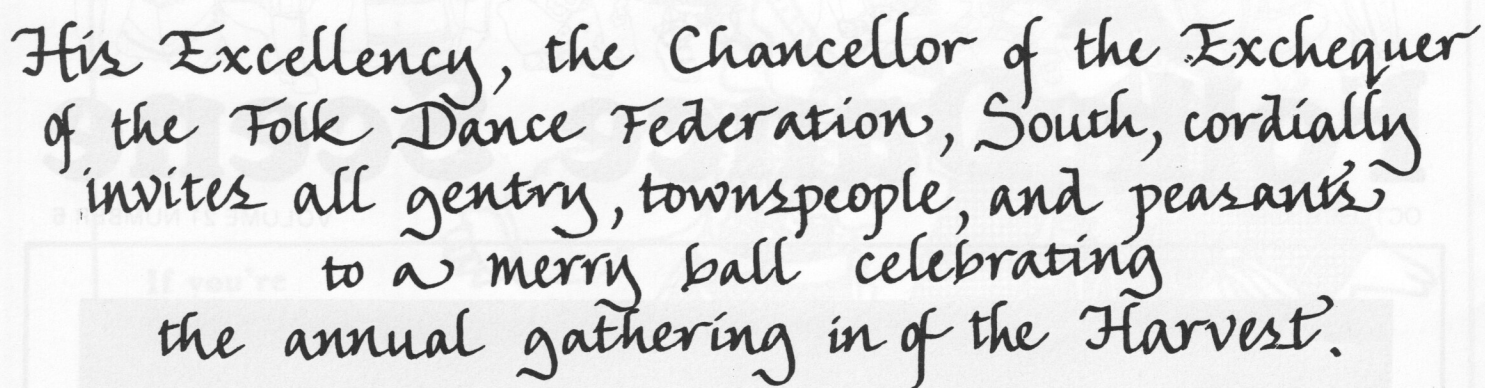 His Excellency, the Chancellor of the Exchequer
of the Folk Dance Federation, South, cordially
invites all gentry, townspeople, and peasants
to a merry ball celebrating
the annual gathering in of the Harvest.